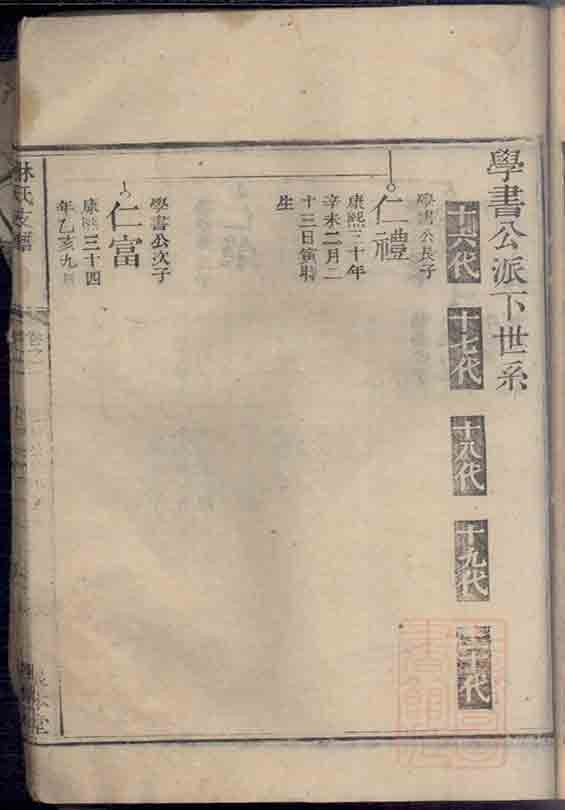 學書公派下世系
十六代
十七代
十八代
十九代
二十代
學書公長子
仁禮
康熙三十年
辛未二月二
十三日寅時
生
學書公次子
仁富
康熙三十四
年乙亥九月
林氏支譜
卷之